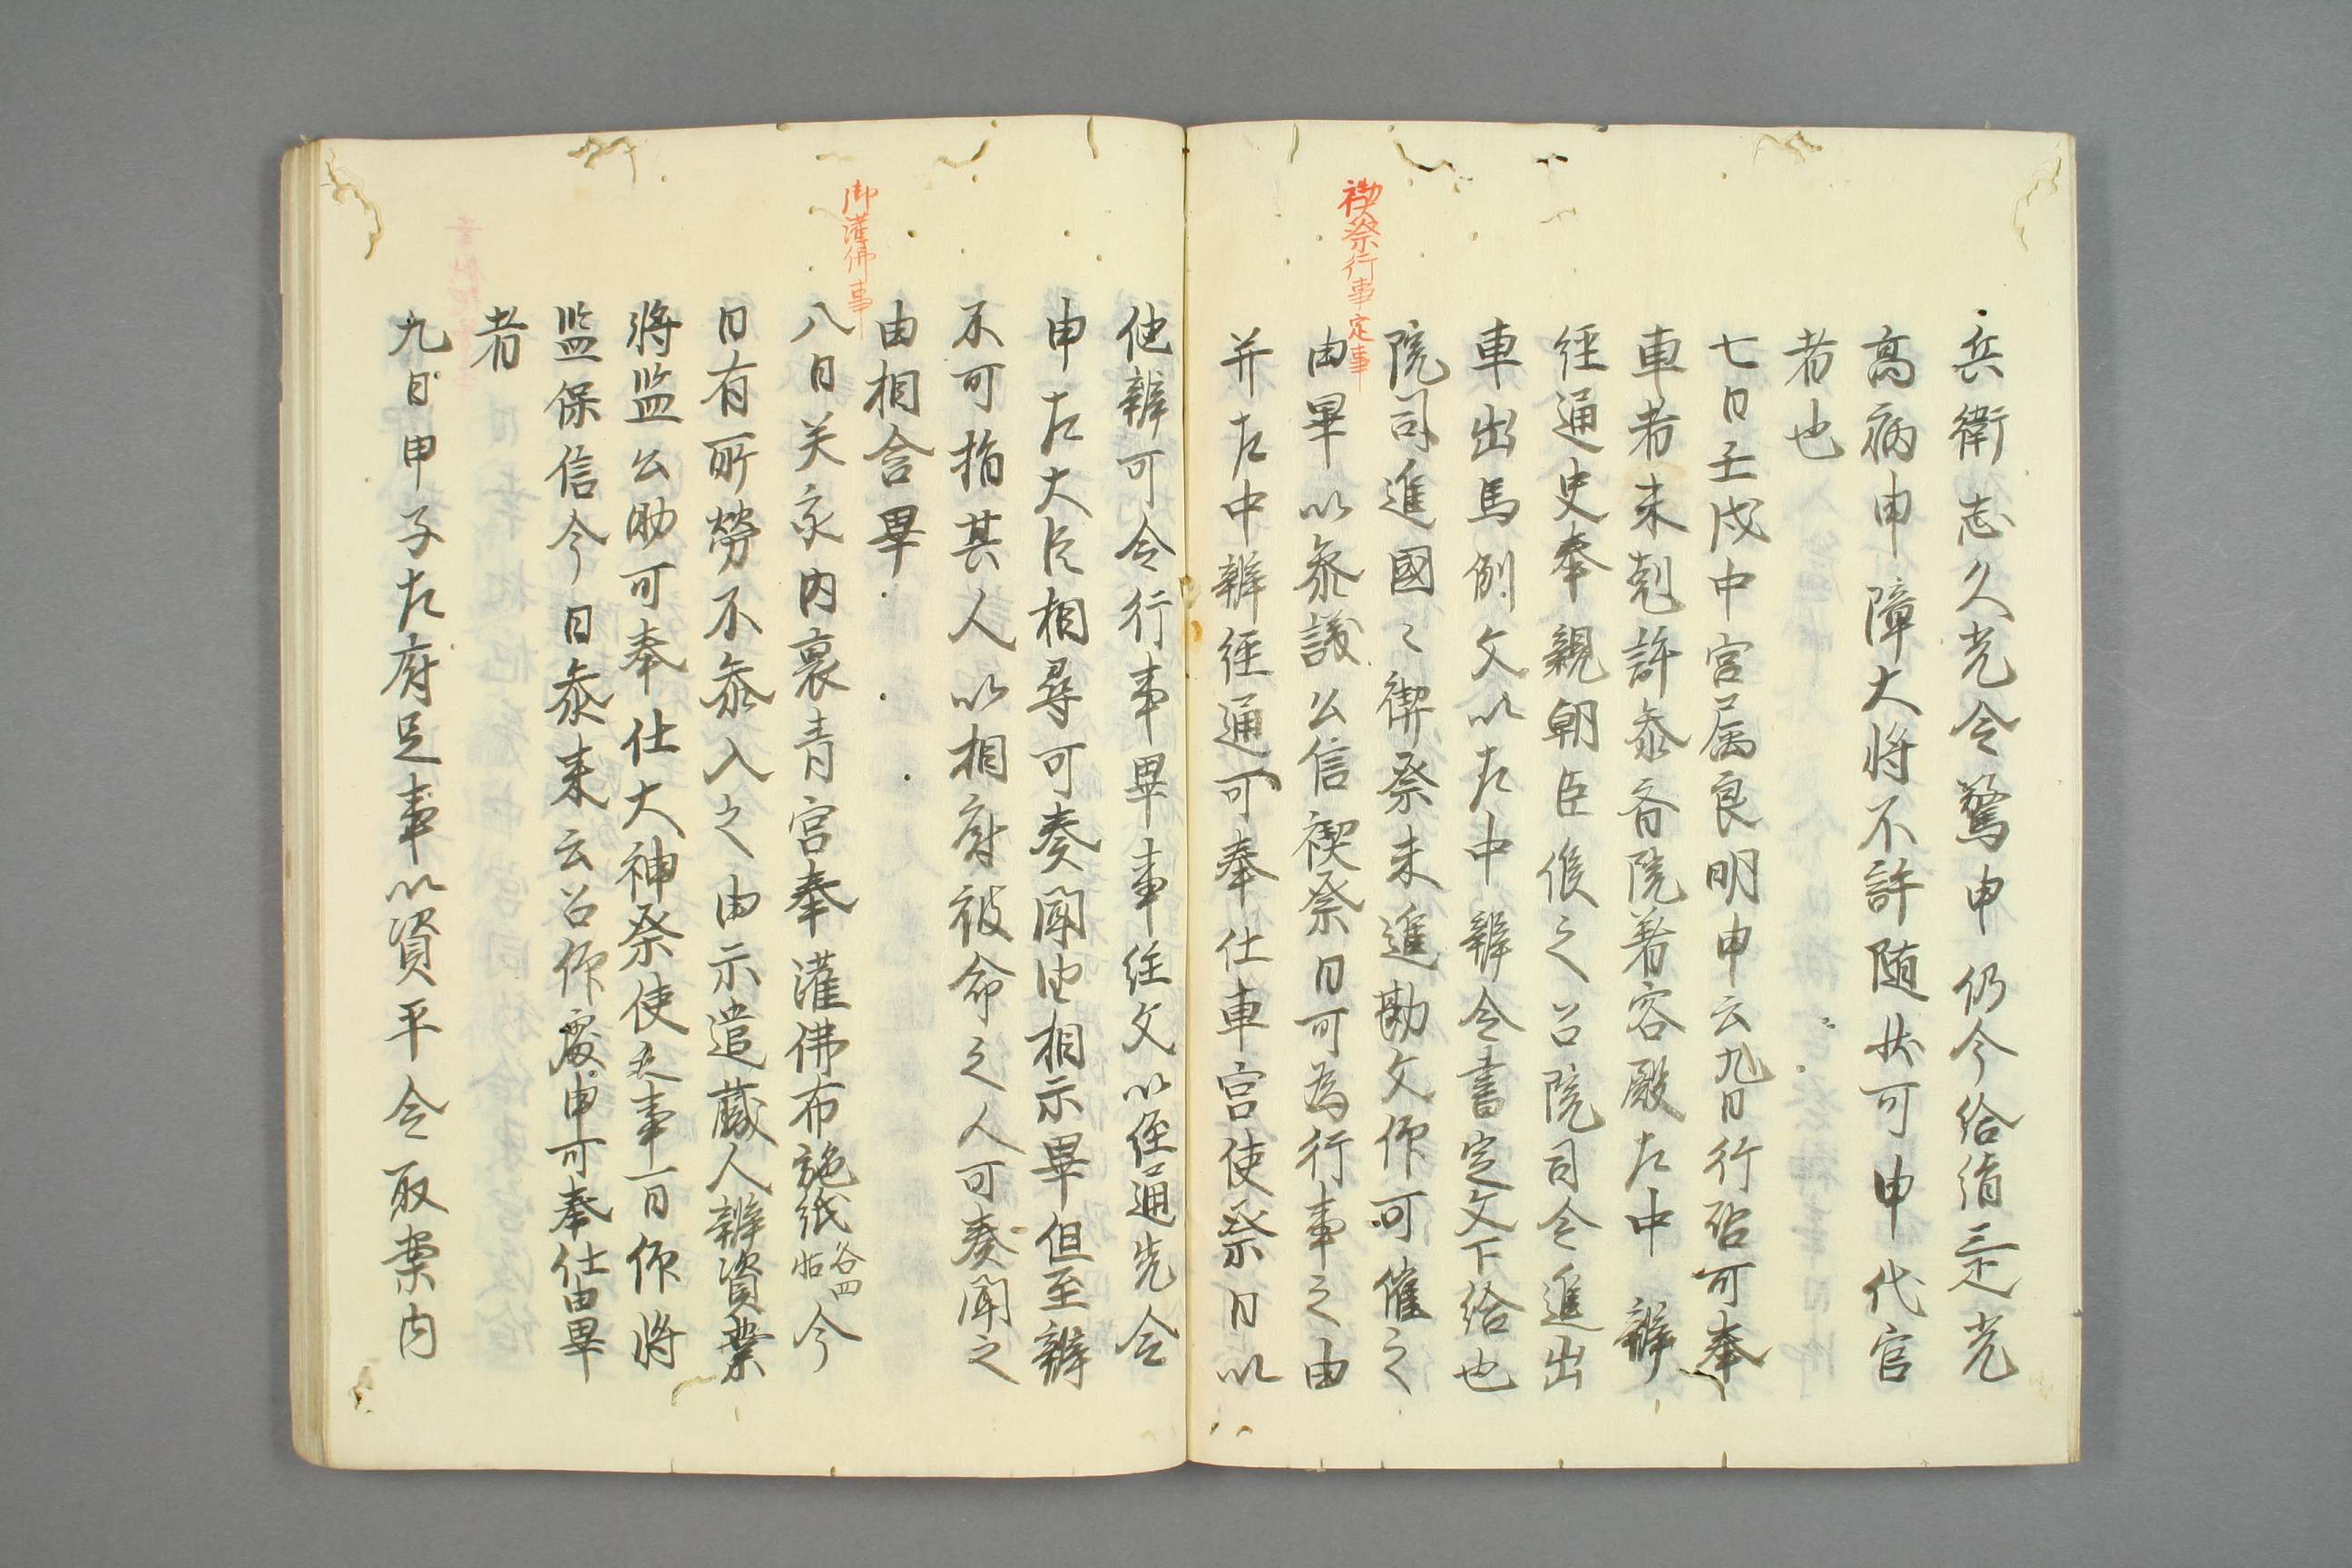 兵衛志久光令驚申仍今給絹三疋光
高病申障大将不許随状可申代官
者也
七日壬戌中宮属良明申云九日行啓可奉
車者未剋許参斎院著客殿左中辨
経通史奉親朝臣候之召院司令進出
車出馬例文以左中辨令書定文下給也
禊祭行事定事
院司進國〻禊祭未進勘文仰可催之
由畢以参議公信禊祭日可為行事之由
并左中辨経通可奉仕車宮使祭日以
他辨可令行事畢事経文以経通先令
申左大臣相尋可奏聞由相示畢但至辨
不可指其人以相府被命之人可奏聞之
由相含畢
御灌佛事
八日癸亥内裏青宮奉灌佛布施紙各四帖今
日有所勞不参入之由示遣蔵人辨資業
将監公助可奉仕大神祭使之事一日仰将
監保信今日参来云召仰處申可奉仕由畢
者
九日甲子左府足事以資平令取案内